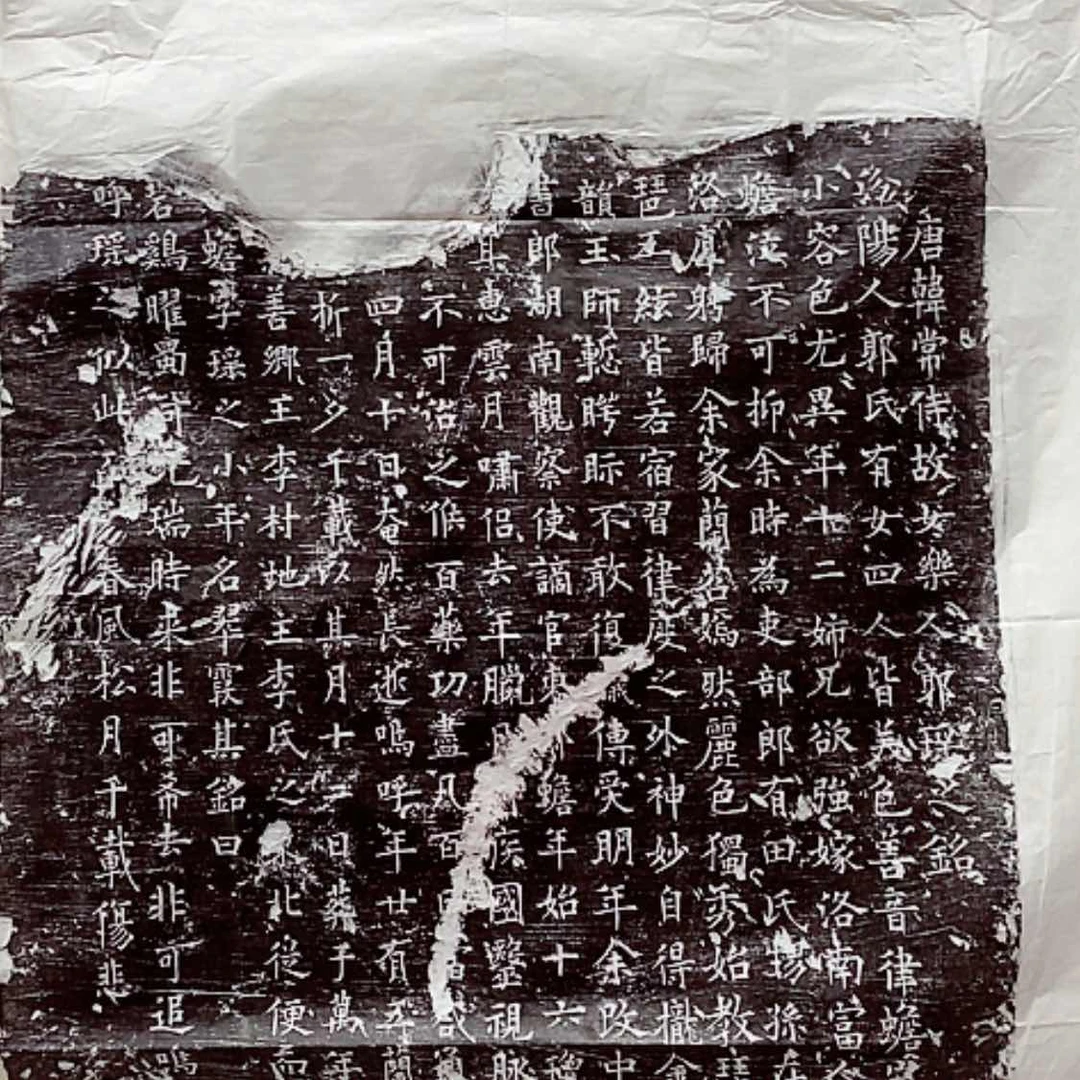 唐韓常侍故女樂人郭瑤之銘
陽人郭氏有女四人皆美色善音律蟾
小容色尤異年十二姉兄欲強嫁洛南富
蟾泣不可抑余時為吏部郎有田氏孫在
洛厚聘歸余家蘭若嫣然麗色獨秀始教琵
琶五絃皆若宿習律度之外神妙自得攏金
韻玉師聽眄眎不敢復傳受明年余改中
書郎湖南觀察使謫官東蟾年始十六
其惠雲月嘯侶去年臘疾國毉視脉
不可治之候百藥功盡凡百
四月十日奄然長逝嗚呼年廿有五蘭
折一夕千載以其月十二日葬于萬年
善鄉王李村地主李氏之北從便而
蟾字瑤之小年名翠霞其銘曰
若鷄曜晶奇光瑞時來非可希去非可追嗚
呼瑤之以此春風松月千載傷悲